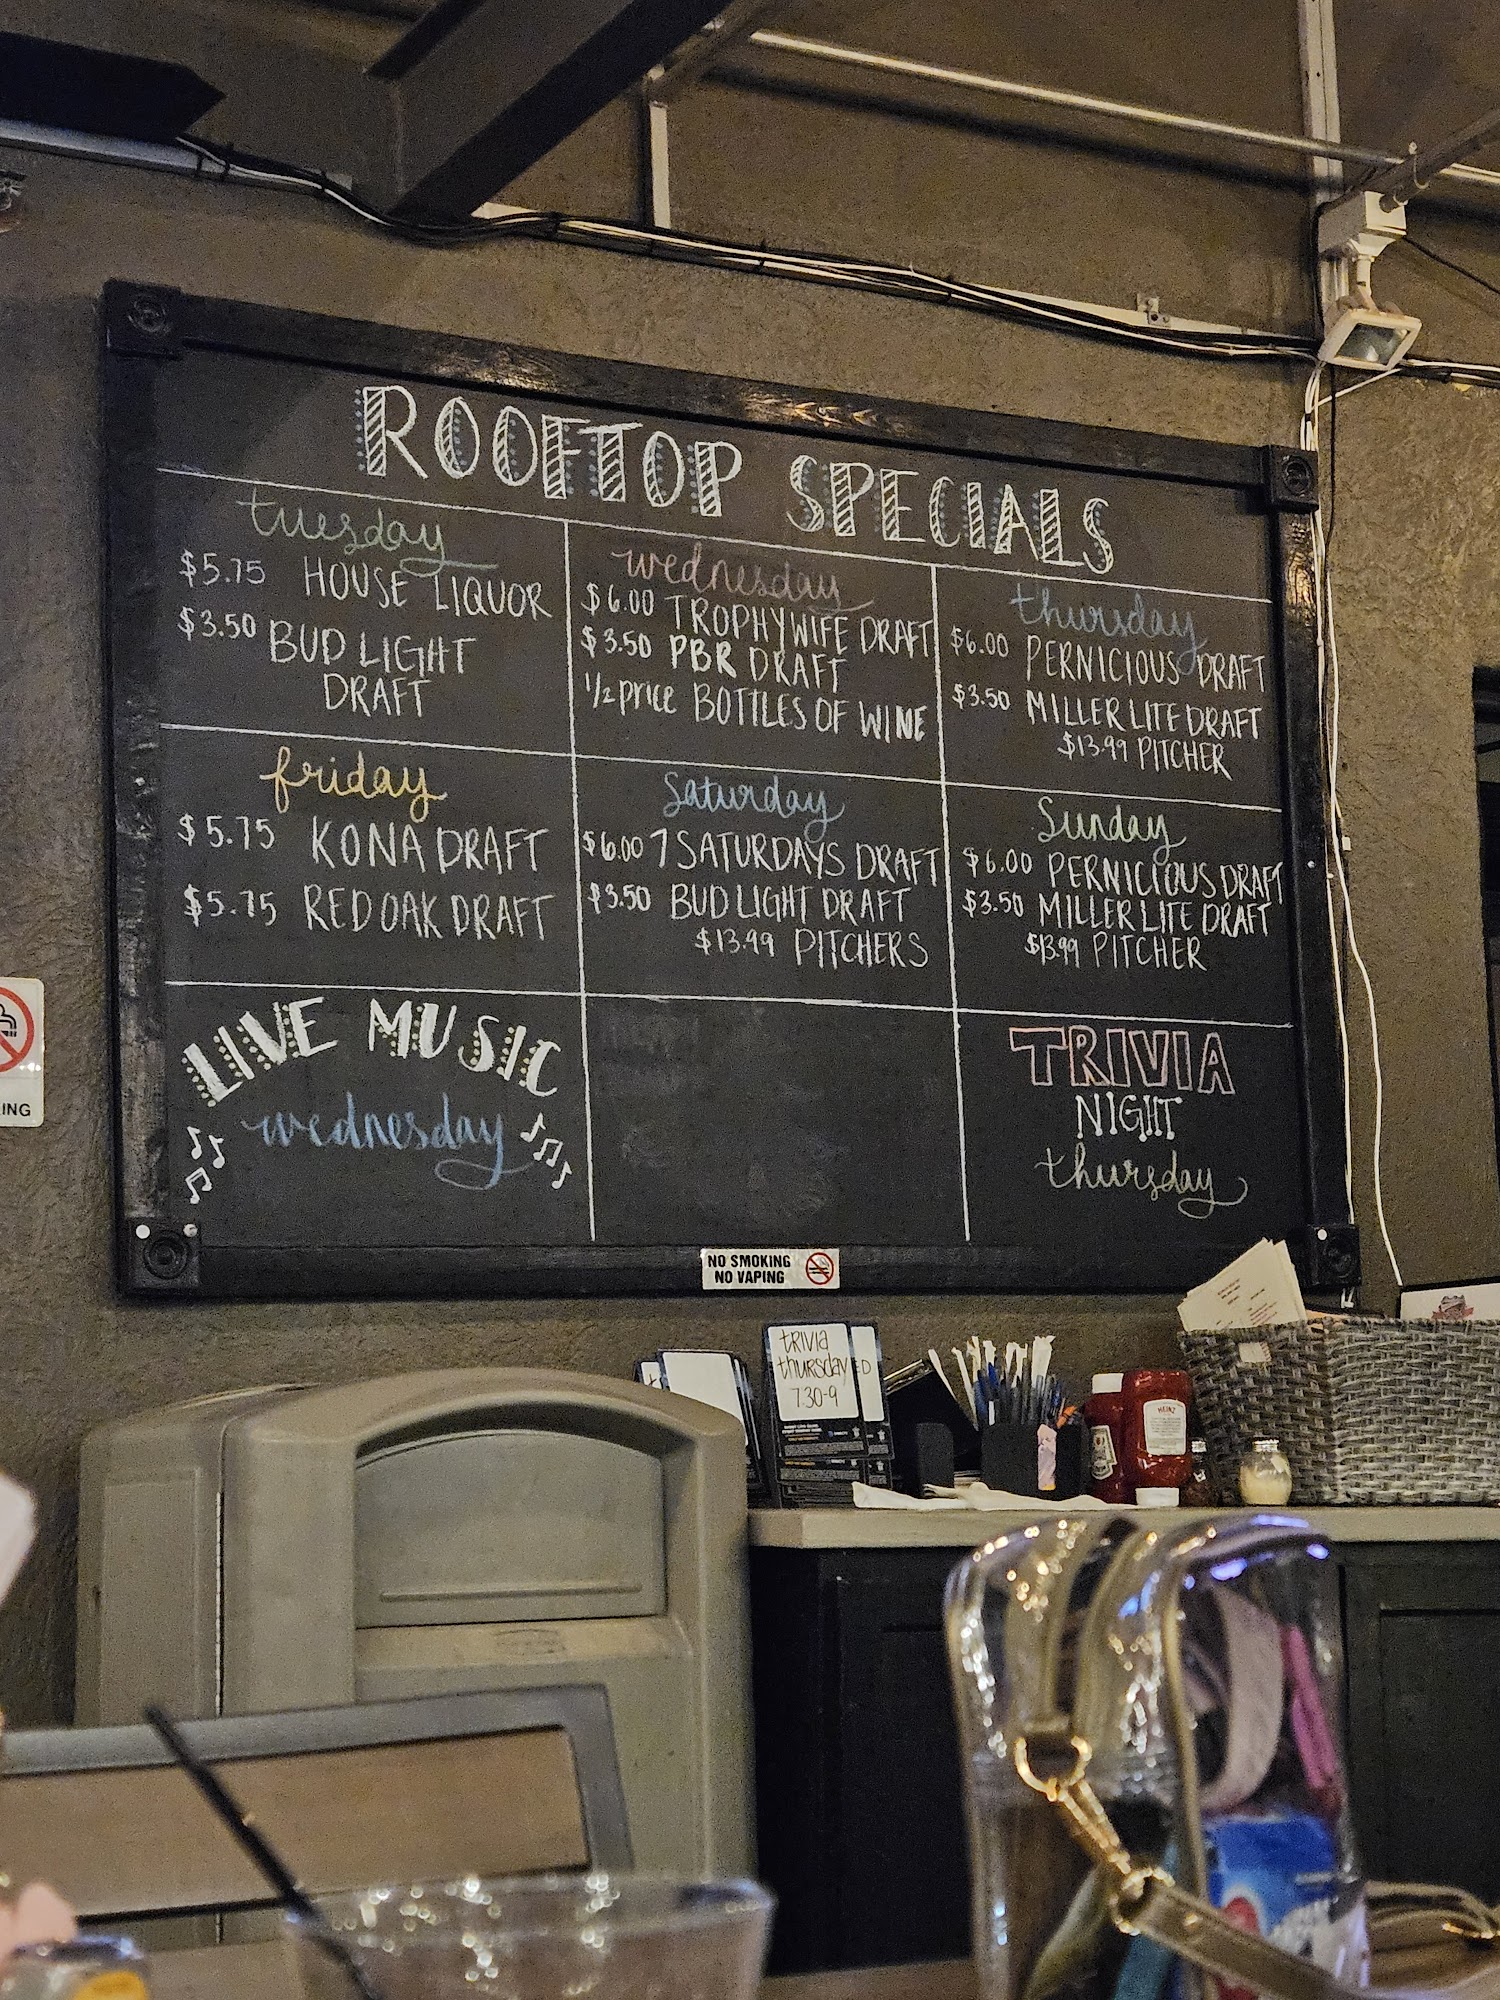 ROOFTOP SPECIALS
tuesday
$5.75 HOUSE LIQUOR
$3.50 BUD LIGHT
DRAFT
wednesday
$6.00 TROPHY WIFE DRAFT
$3.50 PBR DRAFT
1/2 price BOTTLES OF WINE
thursday
$6.00 PERNICIOUS DRAFT
$3.50 MILLER LITE DRAFT
$13.99 PITCHER
friday
$5.75 KONA DRAFT
$5.75 RED OAK DRAFT
saturday
$6.00 7 SATURDAYS DRAFT
$3.50 BUD LIGHT DRAFT
$13.99 PITCHERS
Sunday
$6.00 PERNICIOUS DRAFT
$3.50 MILLER LITE DRAFT
$13.99 PITCHER
LIVE MUSIC
wednesday
TRIVIA
NIGHT
thursday
ING
NO SMOKING
NO VAPING
trivia
thursday
7:30-9
ED
HEINZ